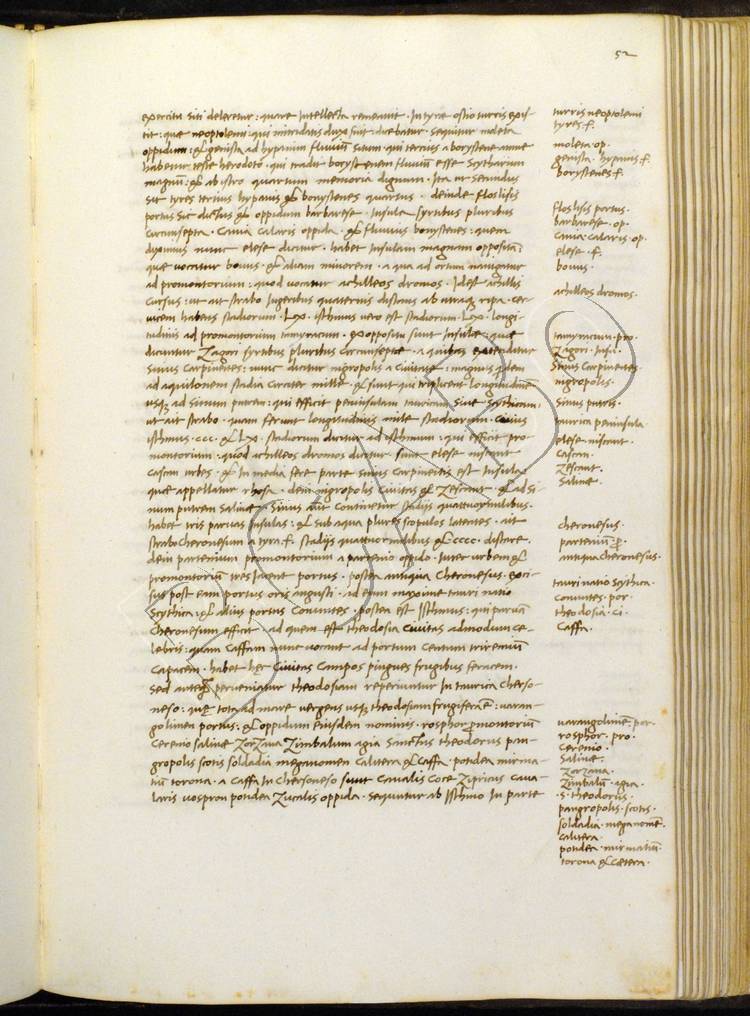 52
exercitu siti deleretur: quare Intellecta remeavit. In tyre ostio turris exis-
tit: quæ neoptolemi: qui mitridatis dux fuit: dicebatur. sequitur moleta
oppidum: & genista ad hypanim fluviũ situm qui tertius a borystene amne
habetur teste herodoto. qui tradit borystenem fluviũ esse Scytharum
magnũ: & ab istro quartum memoria dignum. Ita ut secundus
sit tyres tertius hypanis & borrystenes quartus. deinde floslisis
portus sic dictus & oppidum barbarese. Insule syrtibus pluribus
circumsepta. Cania calaris oppida. & fluvius borystenes: quem
diximus nunc elese dicitur. habet Insulam magnam oppositã:
quæ vocatur bovis. & aliam minorem. a qua ad ortum navigatur
ad promontorium: quod vocatur achilleos dromos. Idest achillis
Cursus: ut ait strabo Iugeribus quaternis distans ab utraq ripa. cer-
vicem habens stadiorum. Lx. isthmus vero est stadiorum. Lx. longi-
tudinis ad promontorium tamyracum. ex opposito sunt Insulæ: quæ
dicuntur Zagori syrtibus pluribus circumseptæ. a quibus extenditur
Sinus Carpinetes: nunc dicitur nigropolis a Civitate: magnus quidem
ad aquilonem stadia circiter mille & sunt qui triplicent longitudinẽ
usq ad Sinum putrem: qui efficit peninsulam tauricam sive Scythicam:
ut ait strabo. quam ferunt longitudinis mile stadiorum. cuius
isthmus. ccc. & Lx. stadiorum dicitur ad isthmum. qui efficit pro-
montorium: quod achilleos dromos dicitur. sunt elese niscant
cascan urbes. & In media fere parte sinus Carpinetis est Insula:
quæ appellatur rhosa. dein nigropolis Civitas & Zescant. & ad Si-
num putrem Salinæ. Sinus ait continetur stadijs quattuormilibus.
habet tris parvas Insulas: & sub aqua plures scopulos latentes. ait
strabo Cheronesum a tyra. f. stadijs quattuormilibus & cccc. distare.
dein partenium promontorium a partenio oppido. Inter urbem &
promontoriũ tres Iacent portus. postea antiqua Cheronesus. exci-
sus post eam portus oris angusti. ad eum maxime tauri natio
Scythica. & alius portus Convutes. postea est Isthmus: qui parvã
Cheronesum efficit. ad quem est theodosia Civitas admodum ce-
lebris: quam Caffam nunc vocant ad portum Centum triremiũ
Capacem. habet hęc Civitas Campos pingues frugibus feracem.
Sed anteq perveniatur theodosiam reperiuntur In taurica cherso-
neso: quę tota ad mare vergens usq theodosiam frugifera ẽ: varan-
golimen portus: & oppidum Eiusdem nominis. rosphor p̱montoriũ
Cerenio salinæ Zorzana Zimbalum agia Sanctus theodorus pan-
gropolis scotis soldadia meganomen calitera & caffa. potidea mirma-
tiũ torona. a Caffa In chersoneso sunt Cavalis Coce Zipricus cava-
laris vospron potidea Zucalis oppida. sequitur ab Isthmo In parte
turris neoptolemi
tyres. f.
moleta. op.
genista. hypanis. f.
borystenes. f.
floslisis portus.
barbarese. op.
Cania. calaris. op.
elese. f.
bovis.
achilleos dromos.
tamyracum. pro.
Zagori. Insul.
Sinus Carpinetes.
nigropolis.
Sinus putris.
taurica peninsula.
elese niscant.
cascan.
Zescant.
Salinæ.
cheronesus.
parteniũ. p̱.
antiqua cheronesus.
tauri natio scythica.
Convutes. por.
theodosia. ci.
Caffa.
varangolimẽ. por.
rosphor. pro.
Cerenio.
Salinæ.
Zorzana.
Zimbalũ. agia.
.S. theodorus.
pangropolis. scotis.
soldadia. meganomẽ.
calitera.
potidea. mirmatiũ.
torona & cætera.